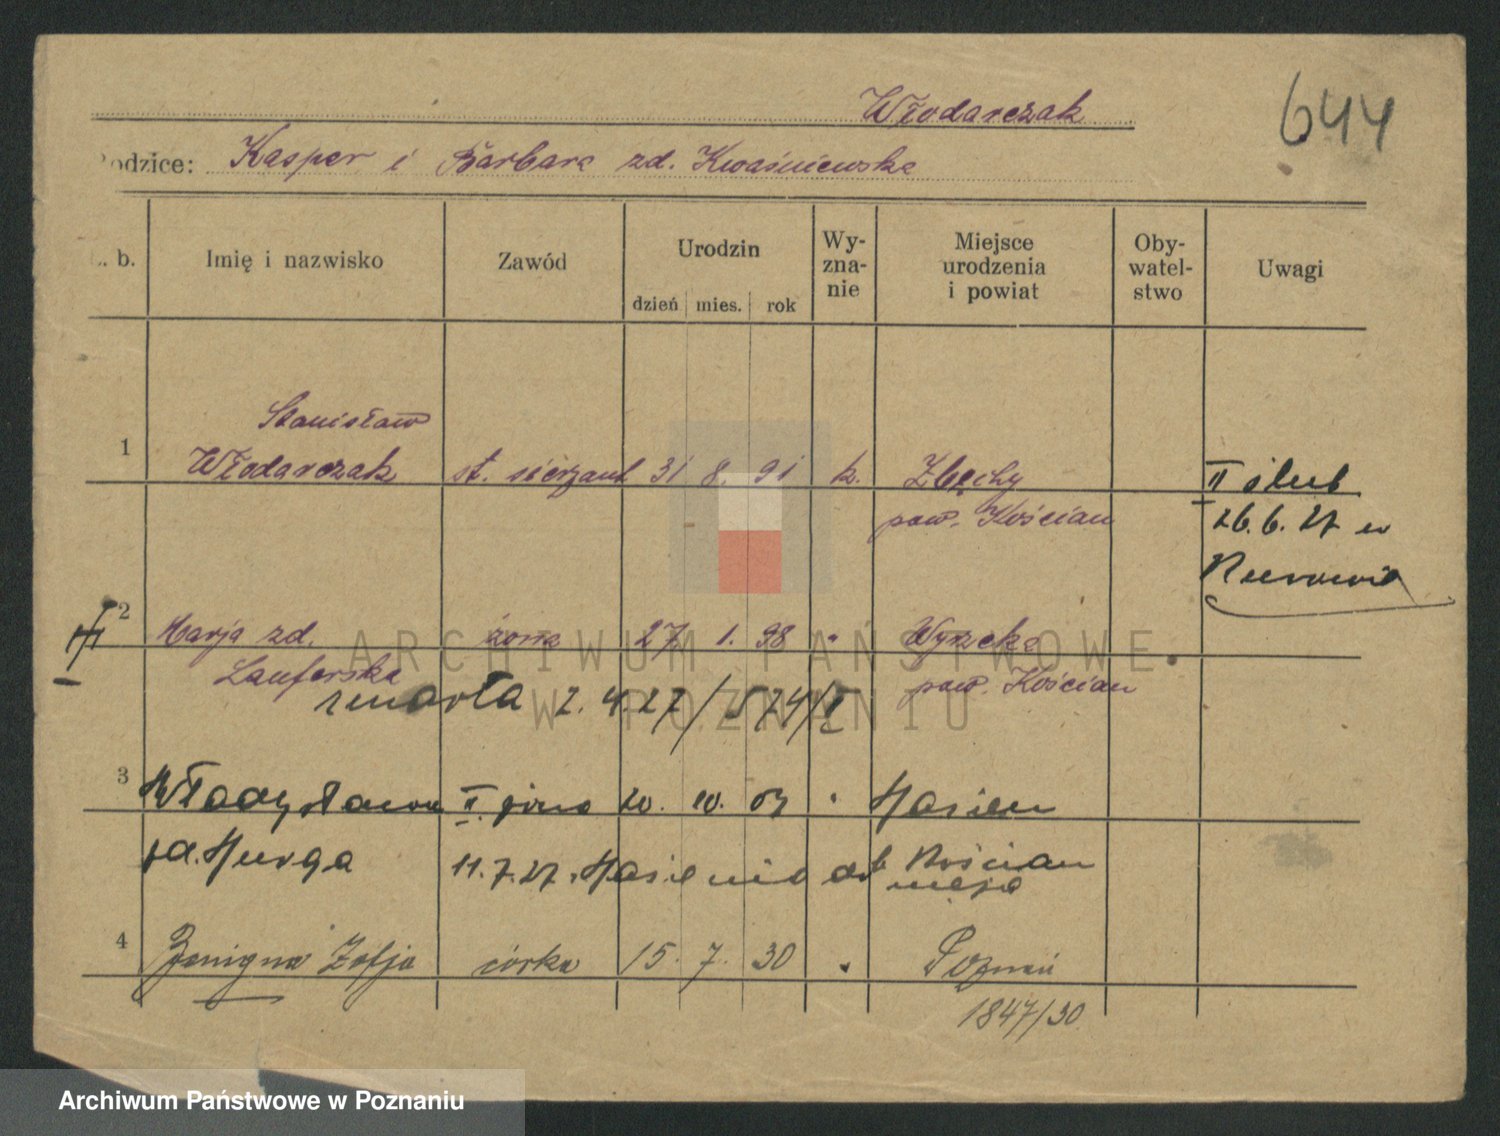 Włodarczak
644
Rodzice: Kasper i Barbara zd. Kwaśniewska
L. b.
Imię i nazwisko
Zawód
Urodzin
dzień mies. rok
Wy-
zna-
nie
Miejsce
urodzenia
i powiat
Oby-
watel-
stwo
Uwagi
Stanisław
1 Włodarczak st. sierżant 31 8. 91 k. Zbęchy II ślub
pow. Kościan 26.6.27 w
2 Marja zd. żona 27 1. 98 " Wyrzeka
Lauferska pow. Kościan
zmarła 2.4.27/574/I
3 Władysława II. żona 20. 10. 03 "
zd. Murga 11.7.27. Kościan
4 Benigna Zofja córka 15. 7. 30 " Poznań
1847/30
ARCHIWUM PAŃSTWOWE
W POZNANIU
Archiwum Państwowe w Poznaniu